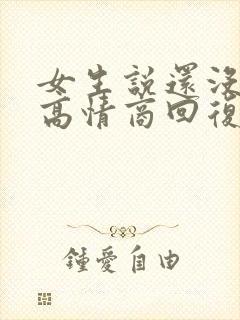 女生説還沒
高情商回復
鍾愛自由